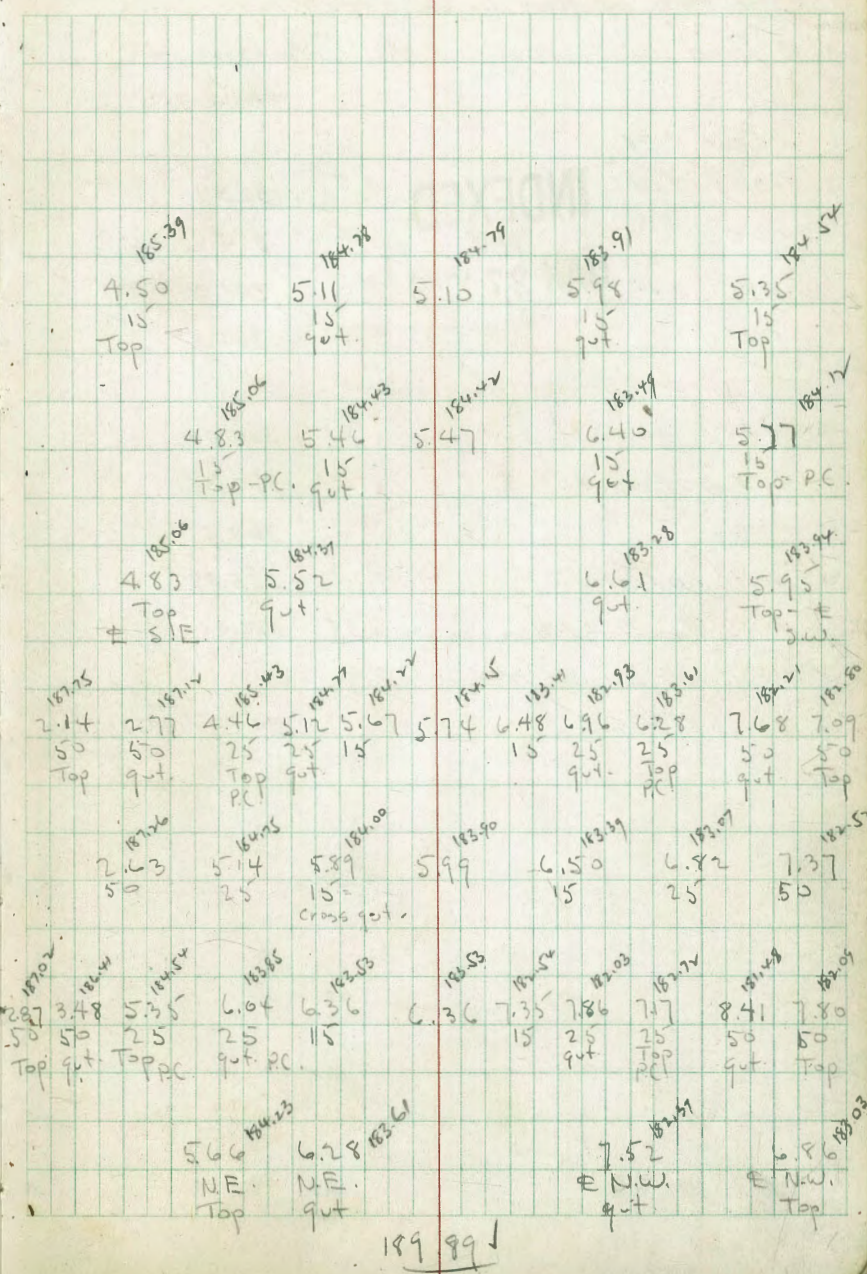 185.39 184.78 184.79 183.91 184.54
4.50 5.11 5.10 5.98 5.35
15 15 15 15
Top gut. gut. Top
185.06 184.43 184.42 183.49 184.12
4.83 5.46 5.47 6.40 5.77
15 15 15 15
Top-P.C. gut. gut Top- P.C.
185.06 184.37 183.28 183.94
4.83 5.52 6.61 5.95
Top gut. gut. Top- ℄
℄ S.E. S.W.
187.75 187.12 185.43 184.77 184.22 184.15 183.41 182.93 183.61 182.21 182.80
2.14 2.77 4.46 5.12 5.67 5.74 6.48 6.96 6.28 7.68 7.09
50 50 25 25 15 15 25 25 50 50
Top gut. Top gut. gut. Top gut. Top
P.C. P.C.
187.26 184.75 184.00 183.90 183.39 183.07 182.52
2.63 5.14 5.89 5.99 6.50 6.82 7.37
50 25 15 15 25 50
cross gut.
187.02 186.41 184.54 183.85 183.53 183.53 182.54 182.03 182.72 181.48 182.09
2.87 3.48 5.35 6.04 6.36 6.36 7.35 7.86 7.17 8.41 7.80
50 50 25 25 15 15 25 25 50 50
Top gut. Top P.C. gut. P.C. gut Top gut. Top
P.C.
184.23 183.61 182.37 183.03
5.66 6.28 7.52 6.86
N.E. N.E. ℄ N.W. ℄ N.W.
Top gut gut Top
189.89